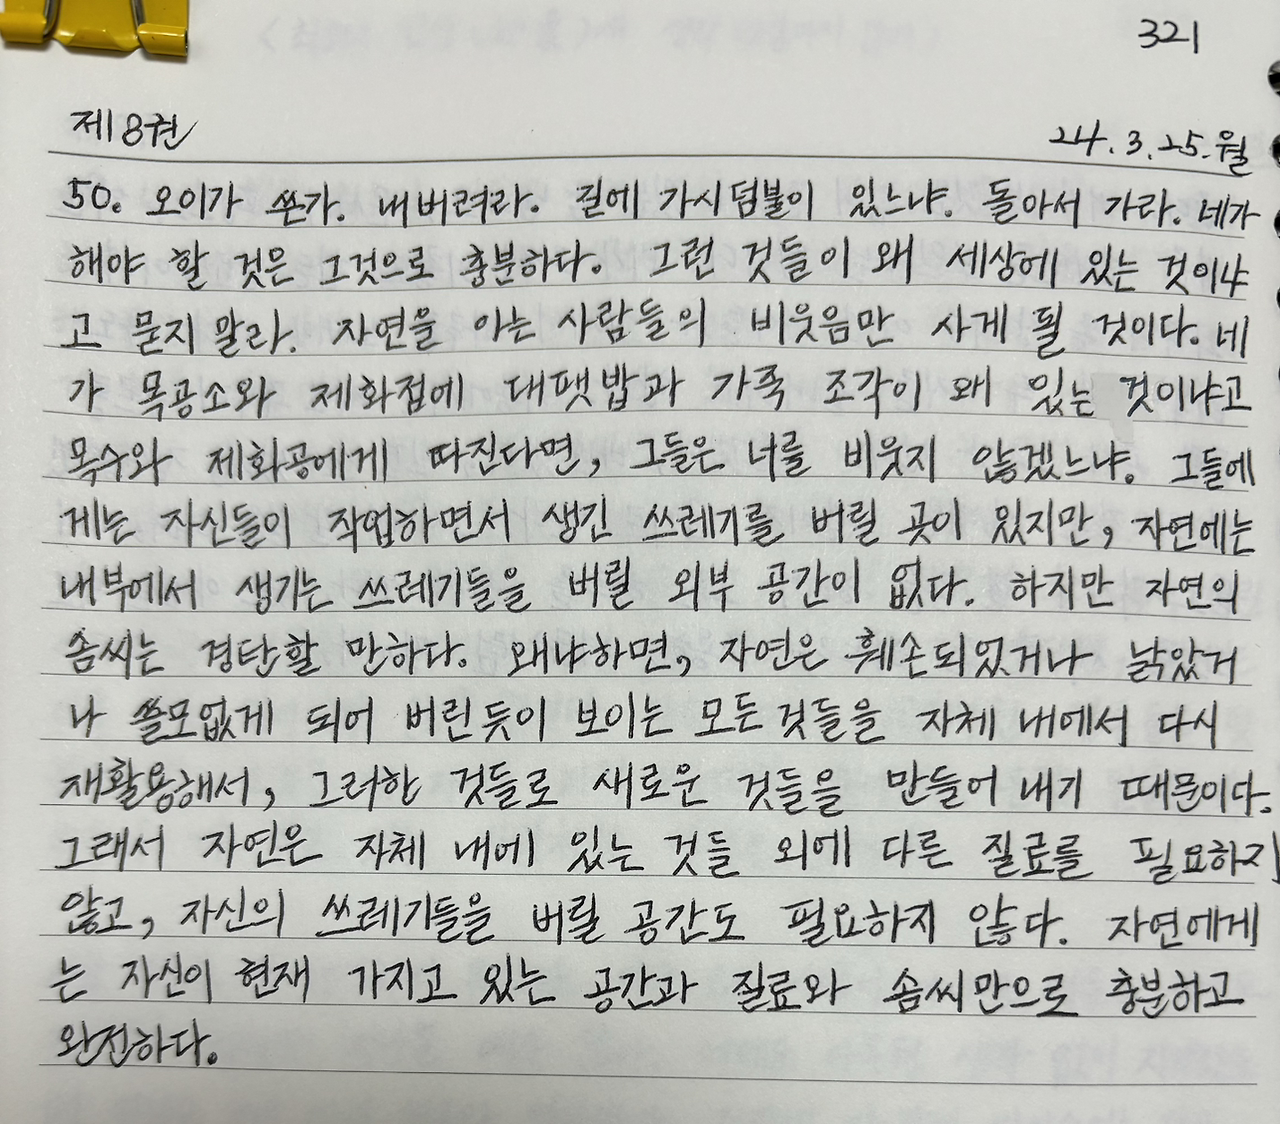 321
제8권 24.3.25.월
50. 오이가 쓴가. 내버려라. 길에 가시덤불이 있느냐. 돌아서 가라. 네가
해야 할 것은 그것으로 충분하다. 그런 것들이 왜 세상에 있는 것이냐
고 묻지 말라. 자연을 아는 사람들의 비웃음만 사게 될 것이다. 네
가 목공소와 제화점에 대팻밥과 가죽 조각이 왜 있는 것이냐고
목수와 제화공에게 따진다면, 그들은 너를 비웃지 않겠느냐. 그들에
게는 자신들이 작업하면서 생긴 쓰레기를 버릴 곳이 있지만, 자연에는
내부에서 생기는 쓰레기들을 버릴 외부 공간이 없다. 하지만 자연의
솜씨는 경탄할 만하다. 왜냐하면, 자연은 훼손되었거나 낡았거
나 쓸모없게 되어 버린듯이 보이는 모든 것들을 자체 내에서 다시
재활용해서, 그러한 것들로 새로운 것들을 만들어 내기 때문이다.
그래서 자연은 자체 내에 있는 것들 외에 다른 질료를 필요하지
않고, 자신의 쓰레기들을 버릴 공간도 필요하지 않다. 자연에게
는 자신이 현재 가지고 있는 공간과 질료와 솜씨만으로 충분하고
완전하다.